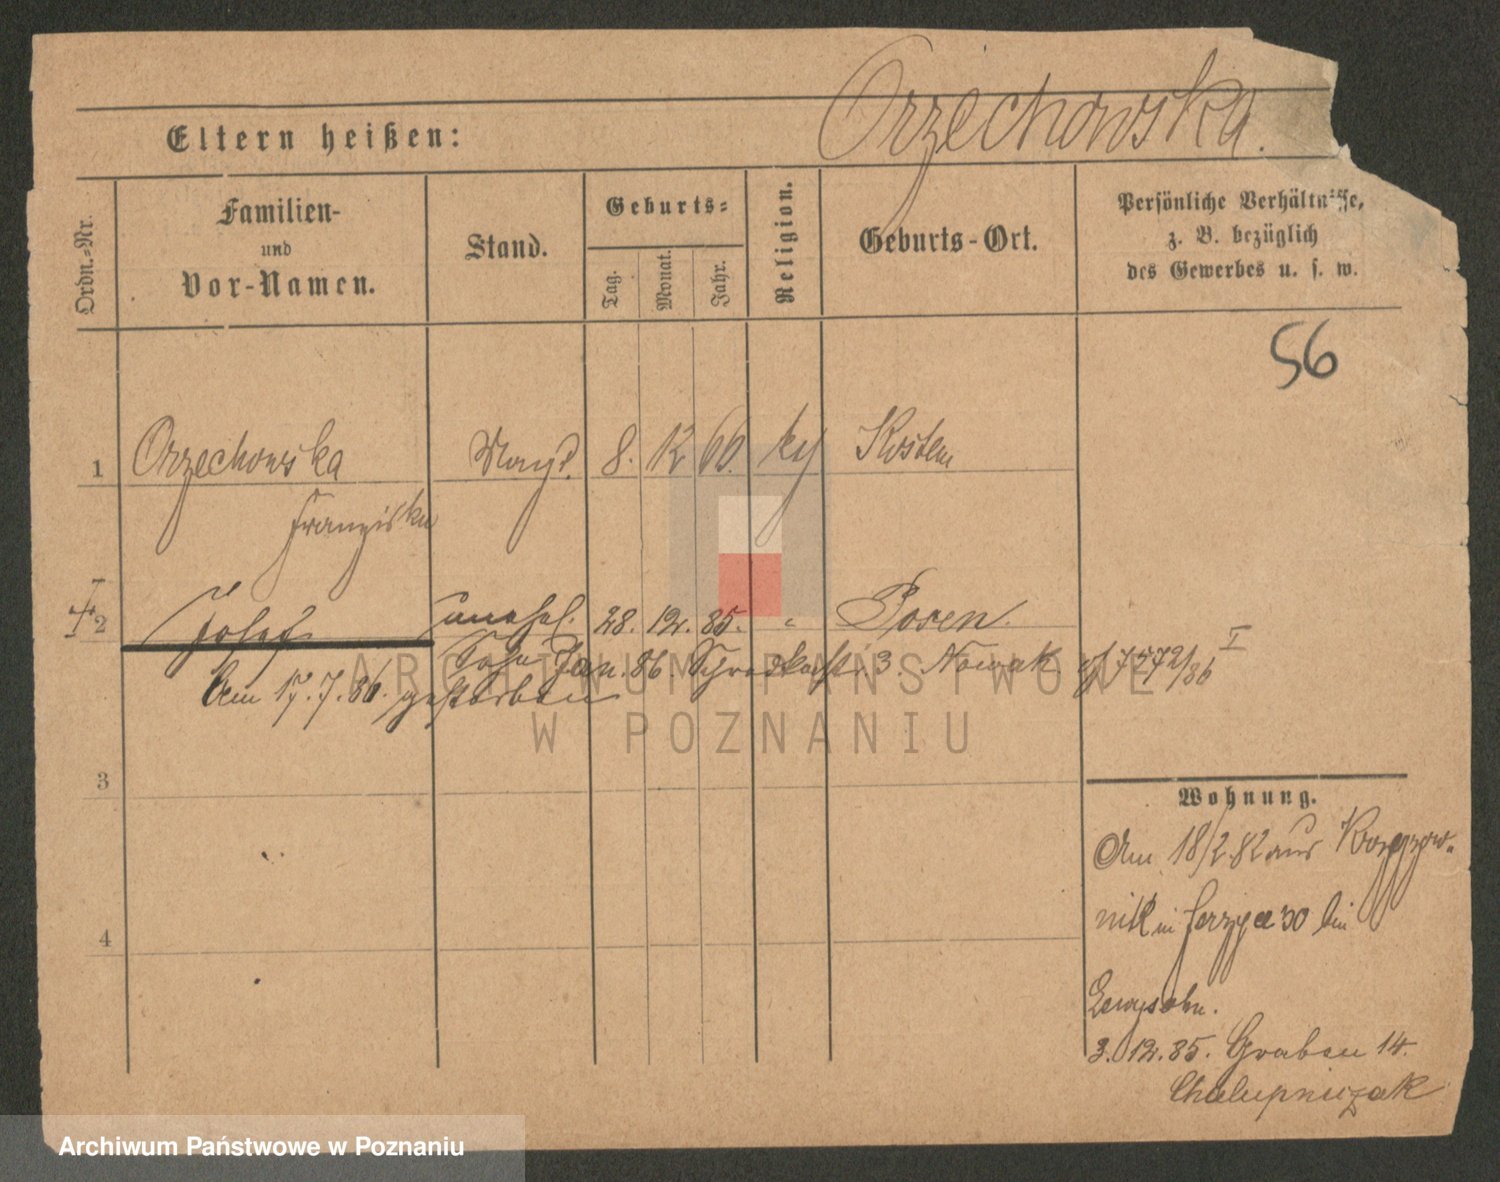 Orzechowska.
Eltern heißen:
Ordn.-Nr.
Familien-
und
Vor-Namen.
Stand.
Geburts-
Tag.
Monat.
Jahr.
Religion.
Geburts-Ort.
Persönliche Verhältnisse,
z. B. bezüglich
des Gewerbes u. s. w.
56
1 Orzechowska Magd. 8. 12 66. Kosten
Franziska
2 Josef unehel. 28. 12. 85. " Posen.
Sohn Jan. 86. 3. Nowak 7572/86 I
Am 17.7.86. gestorben
ARCHIWUM PAŃSTWOWE
W POZNANIU
3
4
Wohnung.
Am 18/2 82 aus
in Jerzyce 30 bei
3.12.85. Graben 14.
Chalupniczak
Archiwum Państwowe w Poznaniu